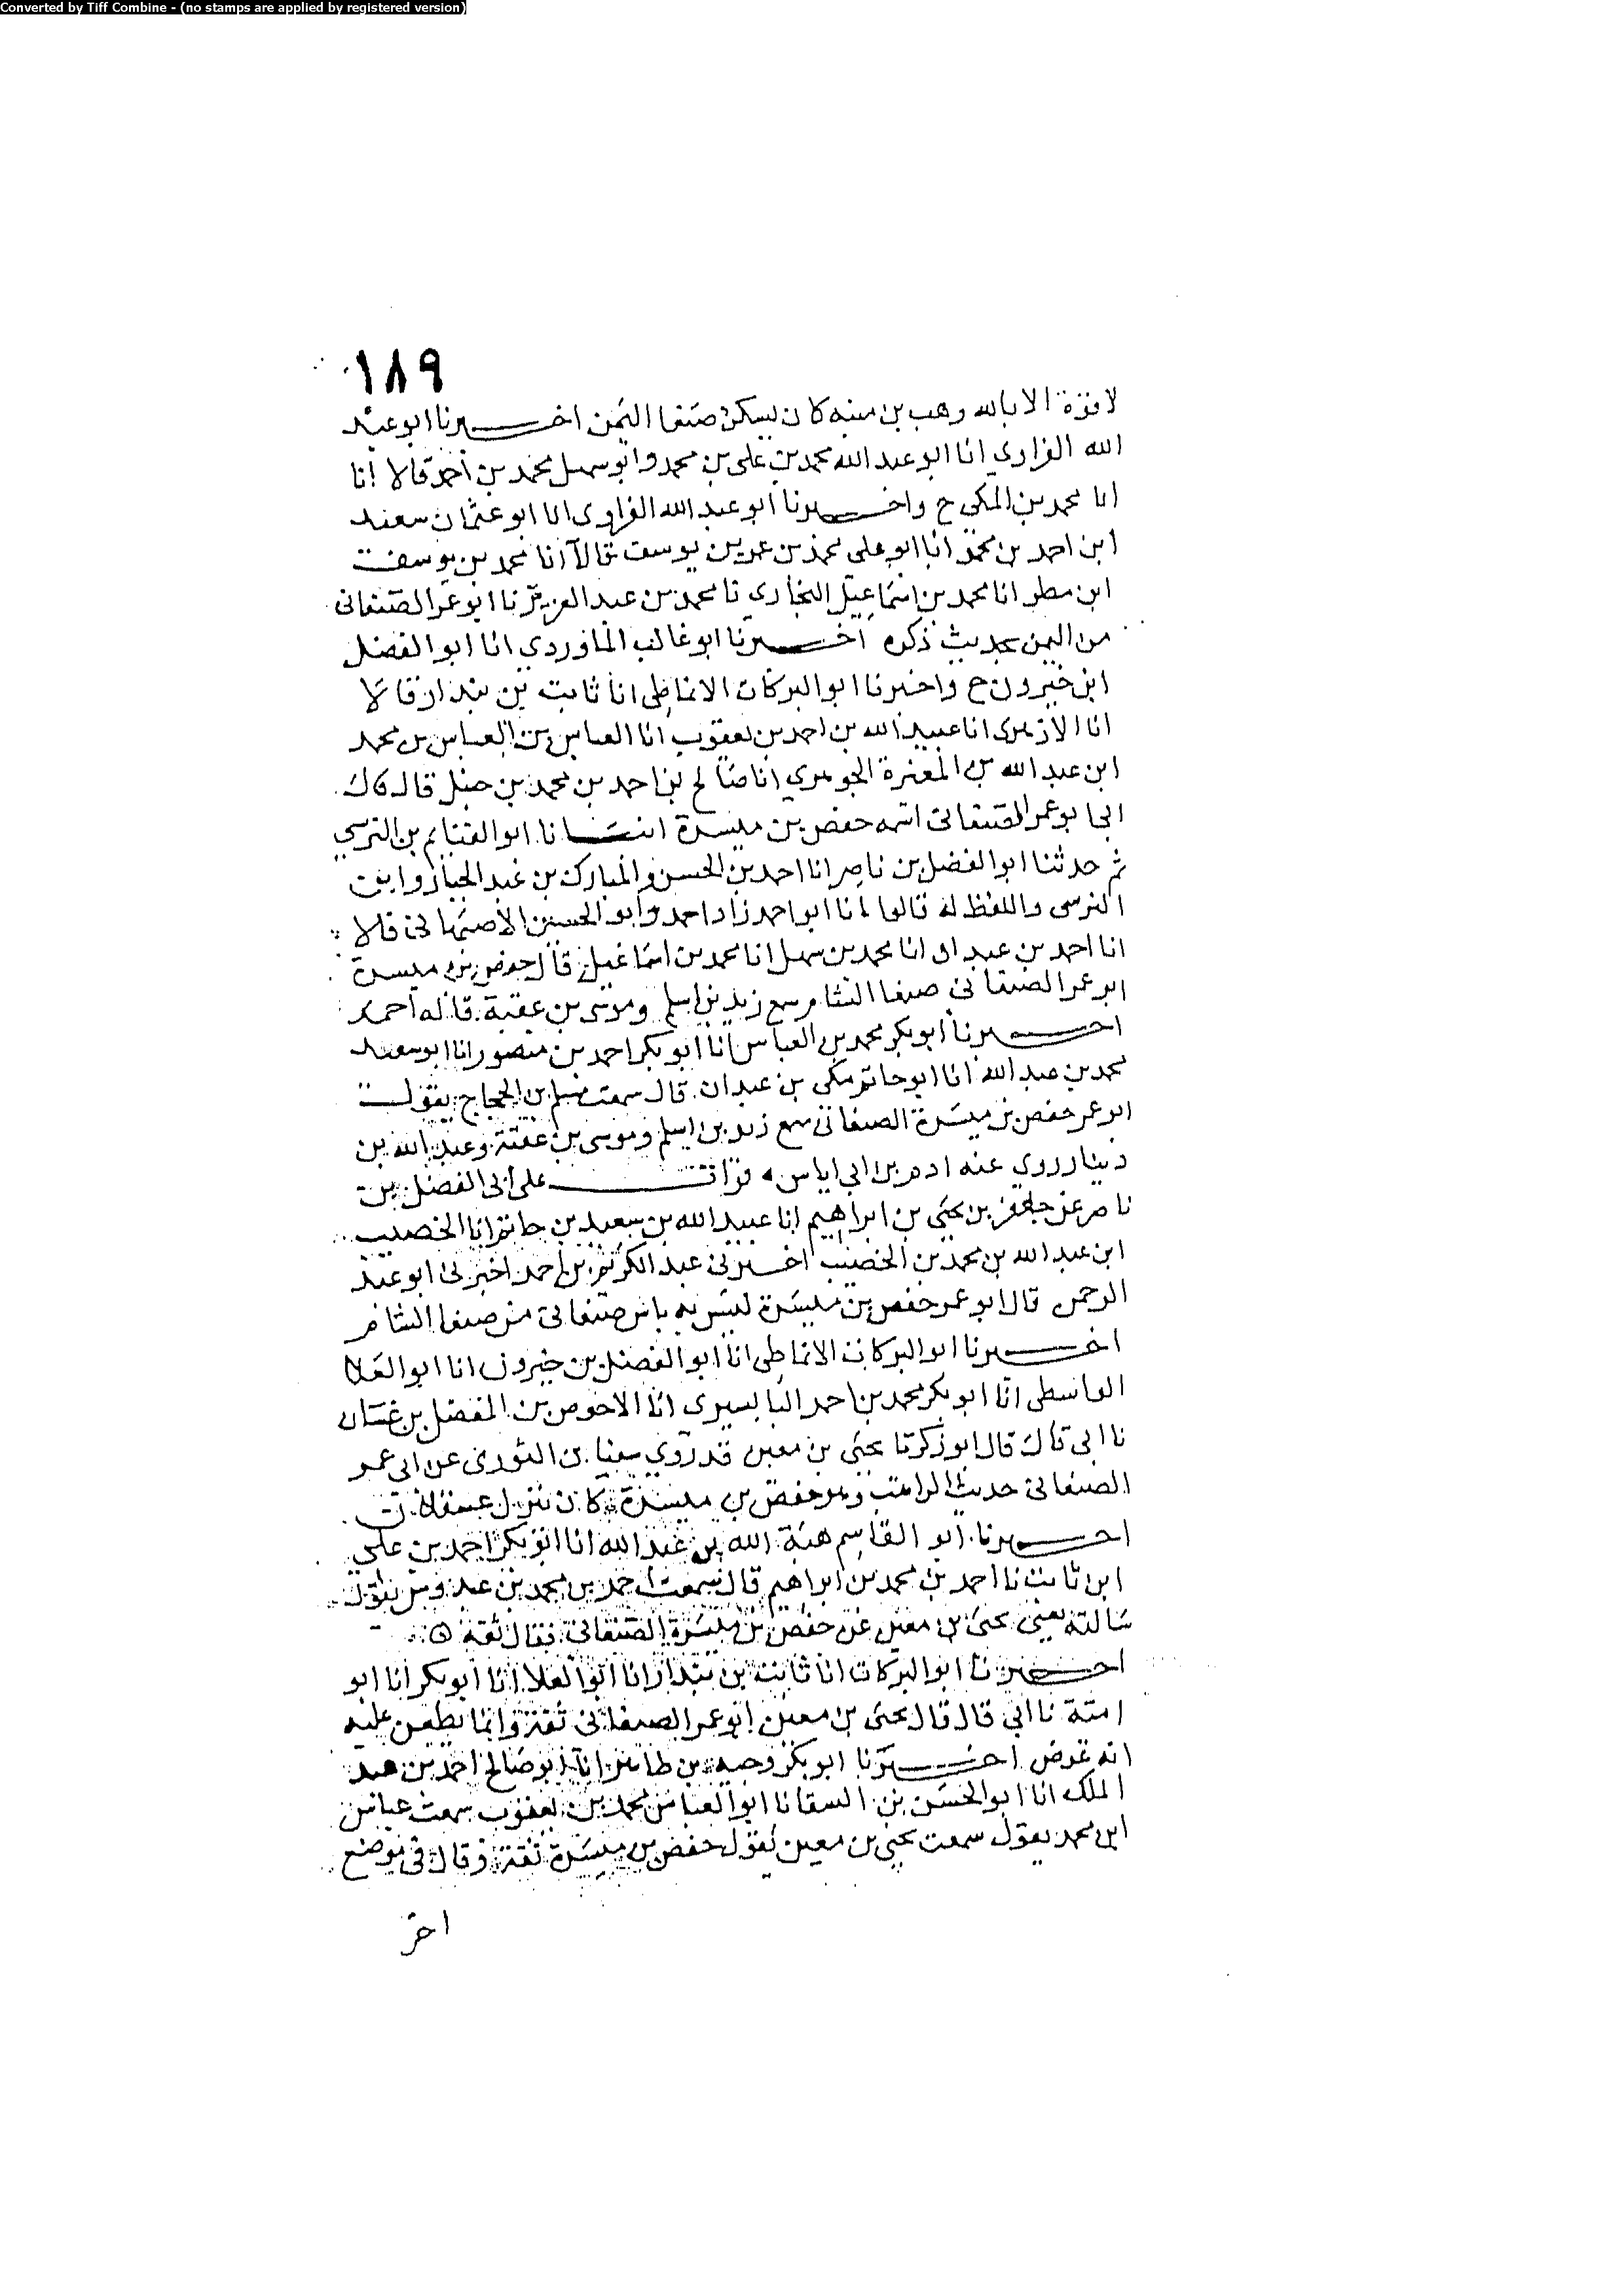 Converted by Tiff Combine - (no stamps are applied by registered version)
١٨٩
لا قوة الا بالله وهب بن منبه كان يسكن صنعا اليمن اخبرنا ابو عبد
الله الفراوي انا ابو عبد الله محمد بن علي بن محمد وابو سهل محمد بن احمد قالا انا
انا محمد بن المكي ح واخبرنا ابو عبد الله الفراوي انا ابو عثمان سعيد
ابن احمد بن محمد انا ابو علي محمد بن عمر بن يوسف قالا انا محمد بن يوسف
ابن مطر انا محمد بن اسماعيل البخاري نا محمد بن عبد العزيز نا ابو عمر الصنعاني
من اليمن بحديث ذكره اخبرنا ابو غالب الماوردي انا ابو الفضل
ابن خيرون ح واخبرنا ابو البركات الانماطي انا ثابت بن بندار قالا
انا الازهري انا عبيد الله بن احمد بن يعقوب انا العباس بن العباس بن محمد
ابن عبد الله بن المغيرة الجوهري انا صالح بن احمد بن محمد بن حنبل قال قال
ابي ابو عمر الصنعاني اسمه حفص بن ميسرة انبانا ابو الغنايم بن النرسي
ثم حدثنا ابو الفضل بن ناصر انا احمد بن الحسن والمبارك بن عبد الجبار وابن
النرسي واللفظ له قالوا انا ابو احمد زاد احمد وابو الحسين الاصبهاني قالا
انا احمد بن عبدان انا محمد بن سهل انا محمد بن اسماعيل قال حفص بن ميسرة
ابو عمر الصنعاني صنعا الشام سمع زيد بن اسلم وموسى بن عقبة قاله احمد
اخبرنا ابو بكر محمد بن العباس انا ابو بكر احمد بن منصور انا ابو سعيد
محمد بن عبد الله انا ابو حاتم مكي بن عبدان قال سمعت مسلم بن الحجاج يقول
ابو عمر حفص بن ميسرة الصنعاني سمع زيد بن اسلم وموسى بن عقبة وعبد الله بن
دينار روي عنه ادم بن ابي اياس قرات على ابي الفضل بن
ناصر عن جعفر بن يحيى بن ابراهيم انا عبيد الله بن سعيد بن حاتم انا الخصيب
ابن عبد الله بن محمد بن الخصيب اخبرني عبد الكريم بن احمد اخبرني ابو عبد
الرحمن قال ابو عمر حفص بن ميسرة ليس به باس صنعاني من صنعا الشام
اخبرنا ابو البركات الانماطي انا ابو الفضل بن خيرون انا ابو العلا
الواسطي انا ابو بكر محمد بن احمد البابسيري انا الاحوص بن المفضل بن غسان
نا ابي قال قال ابو زكريا يحيى بن معين قد روي سفيان الثوري عن ابي عمر
الصنعاني حديث الراهب وهو حفص بن ميسرة كان ينزل عسقلان
اخبرنا ابو القاسم هبة الله بن عبد الله انا ابو بكر احمد بن علي
ابن ثابت نا احمد بن محمد بن ابراهيم قال سمعت احمد بن محمد بن عبدوس يقول
سالته يعني يحيى بن معين عن حفص بن ميسرة الصنعاني فقال ثقة
اخبرنا ابو البركات انا ثابت بن بندار انا ابو العلا انا ابو بكر انا ابو
امية نا ابي قال قال يحيى بن معين ابو عمر الصنعاني ثقة وانما يطعن عليه
انه عرض اخبرنا ابو بكر وجيه بن طاهر انا ابو صالح احمد بن عبد
الملك انا ابو الحسن بن السقا نا ابو العباس محمد بن يعقوب سمعت عباس
ابن محمد يقول سمعت يحيى بن معين يقول حفص بن ميسرة ثقة وقال في موضع
اخر